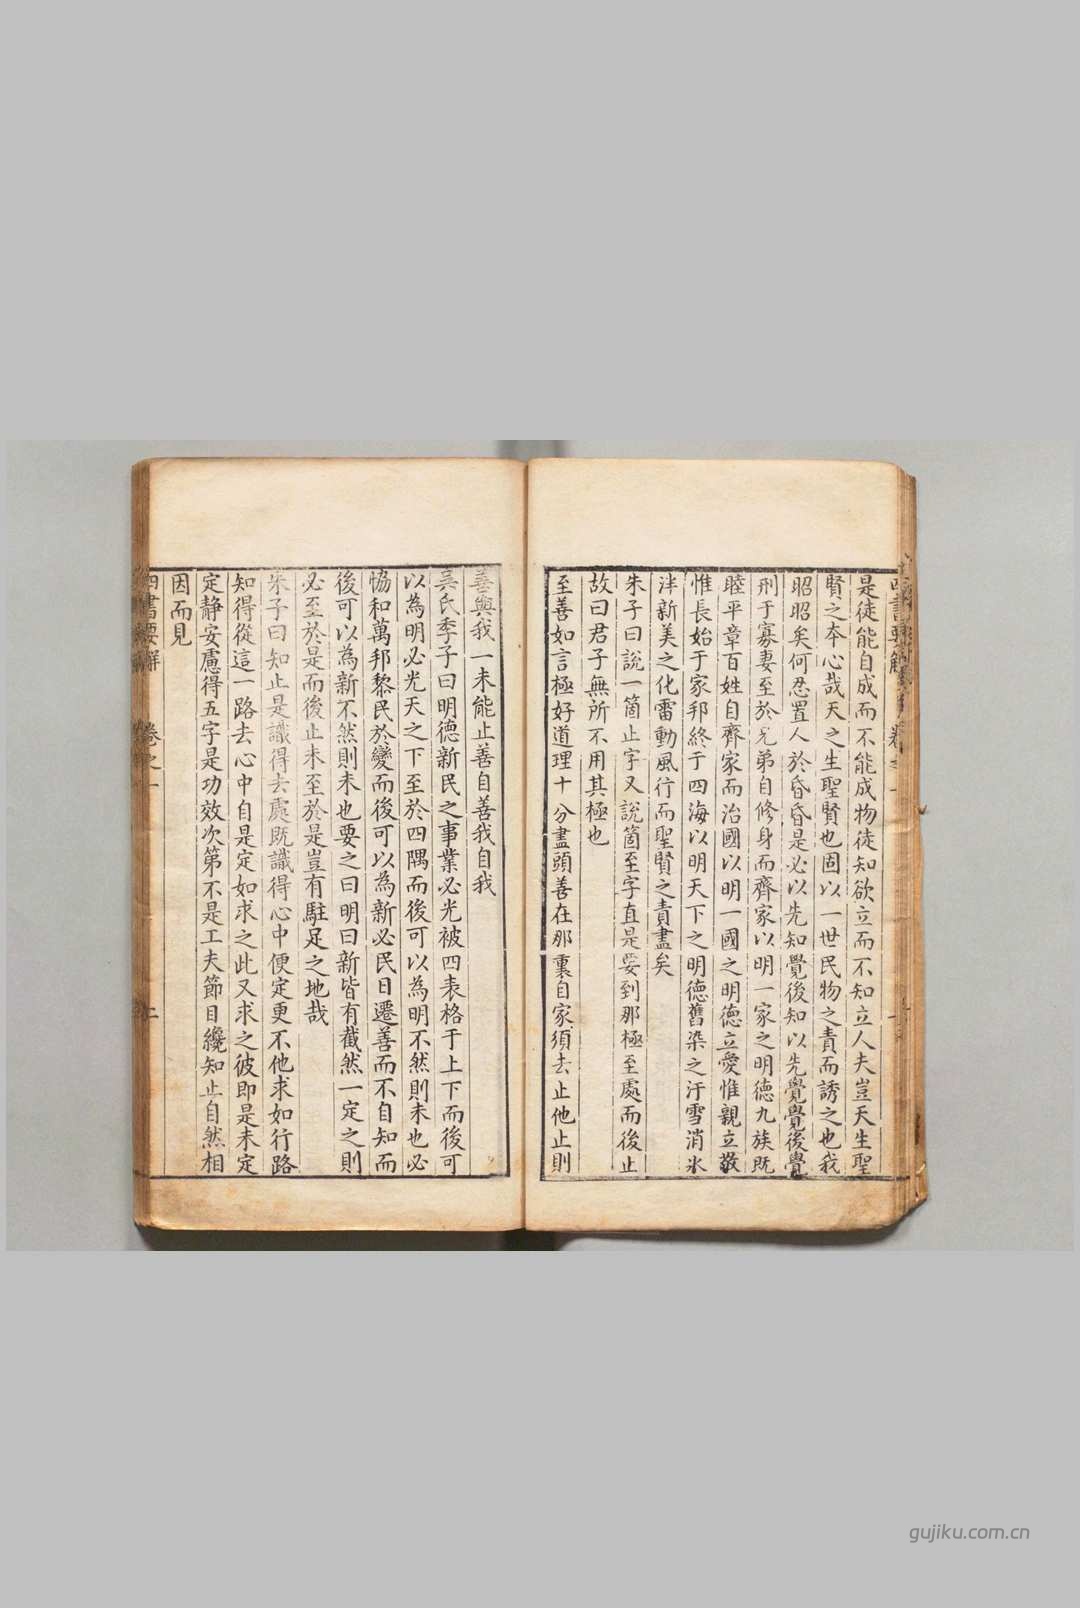 是徒能自成而不能成物徒知欲立而不知立人夫豈天生聖
賢之本心哉天之生聖賢也固以一世民物之責而誘之也我
昭昭矣何忍置人於昏昏是必以先知覺後知以先覺覺後覺
刑于寡妻至於兄弟自修身而齊家以明一家之明德九族既
睦平章百姓自齊家而治國以明一國之明德立愛惟親立敬
惟長始于家邦終于四海以明天下之明德舊染之汙雪消氷
泮新美之化雷動風行而聖賢之責盡矣
朱子曰說一箇止字又說箇至字直是要到那極至處而後止
故曰君子無所不用其極也
至善如言極好道理十分盡頭善在那裏自家須去止他止則
善與我一未能止善自善我自我
吳氏季子曰明德新民之事業必光被四表格于上下而後可
以為明必光天之下至於四隅而後可以為明不然則未也必
恊和萬邦黎民於變而後可以為新必民日遷善而不自知而
後可以為新不然則未也要之曰明曰新皆有截然一定之則
必至於是而後止未至於是豈有駐足之地哉
朱子曰知止是識得去處既識得心中便定更不他求如行路
知得從這一路去心中自是定如求之此又求之彼即是未定
定靜安慮得五字是功效次第不是工夫節目纔知止自然相
因而見
四書要解 卷之一 二
gujiku.com.cn